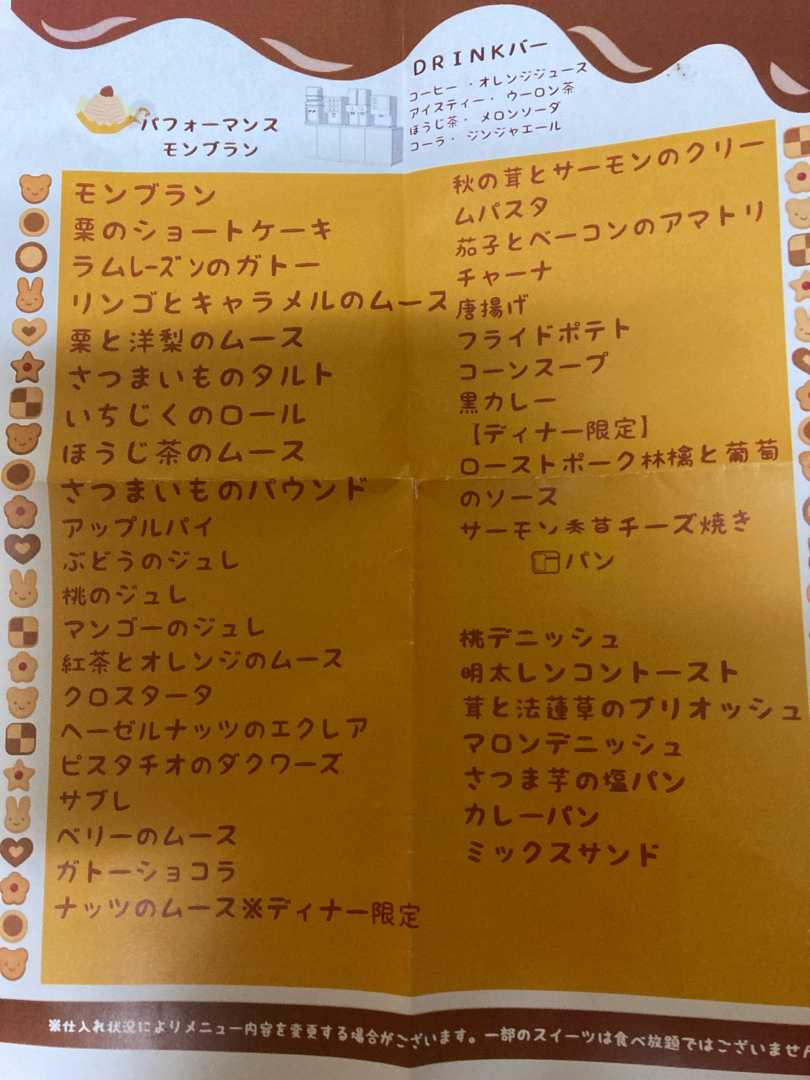 DRINKバー
コーヒー ・オレンジジュース
アイスティー・ ウーロン茶
ほうじ茶・ メロンソーダ
コーラ・ ジンジャエール
パフォーマンス
モンブラン
モンブラン
栗のショートケーキ
ラムレーズンのガトー
リンゴとキャラメルのムース
栗と洋梨のムース
さつまいものタルト
いちじくのロール
ほうじ茶のムース
さつまいものパウンド
アップルパイ
ぶどうのジュレ
桃のジュレ
マンゴーのジュレ
紅茶とオレンジのムース
クロスタータ
ヘーゼルナッツのエクレア
ピスタチオのダクワーズ
サブレ
ベリーのムース
ガトーショコラ
ナッツのムース※ディナー限定
秋の茸とサーモンのクリー
ムパスタ
茄子とベーコンのアマトリ
チャーナ
唐揚げ
フライドポテト
コーンスープ
黒カレー
【ディナー限定】
ローストポーク林檎と葡萄
のソース
サーモン チーズ焼き
パン
桃デニッシュ
明太レンコントースト
茸と法蓮草のブリオッシュ
マロンデニッシュ
さつま芋の塩パン
カレーパン
ミックスサンド
※仕入れ状況によりメニュー内容を変更する場合がございます。一部のスイーツは食べ放題ではございませ